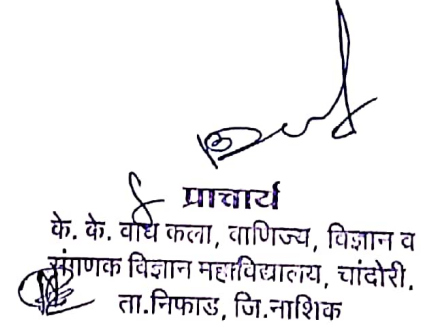 प्राचार्य
के. के. वाघ कला, वाणिज्य, विज्ञान व
संगणक विज्ञान महाविद्यालय, चांदोरी.
ता.निफाड, जि.नाशिक